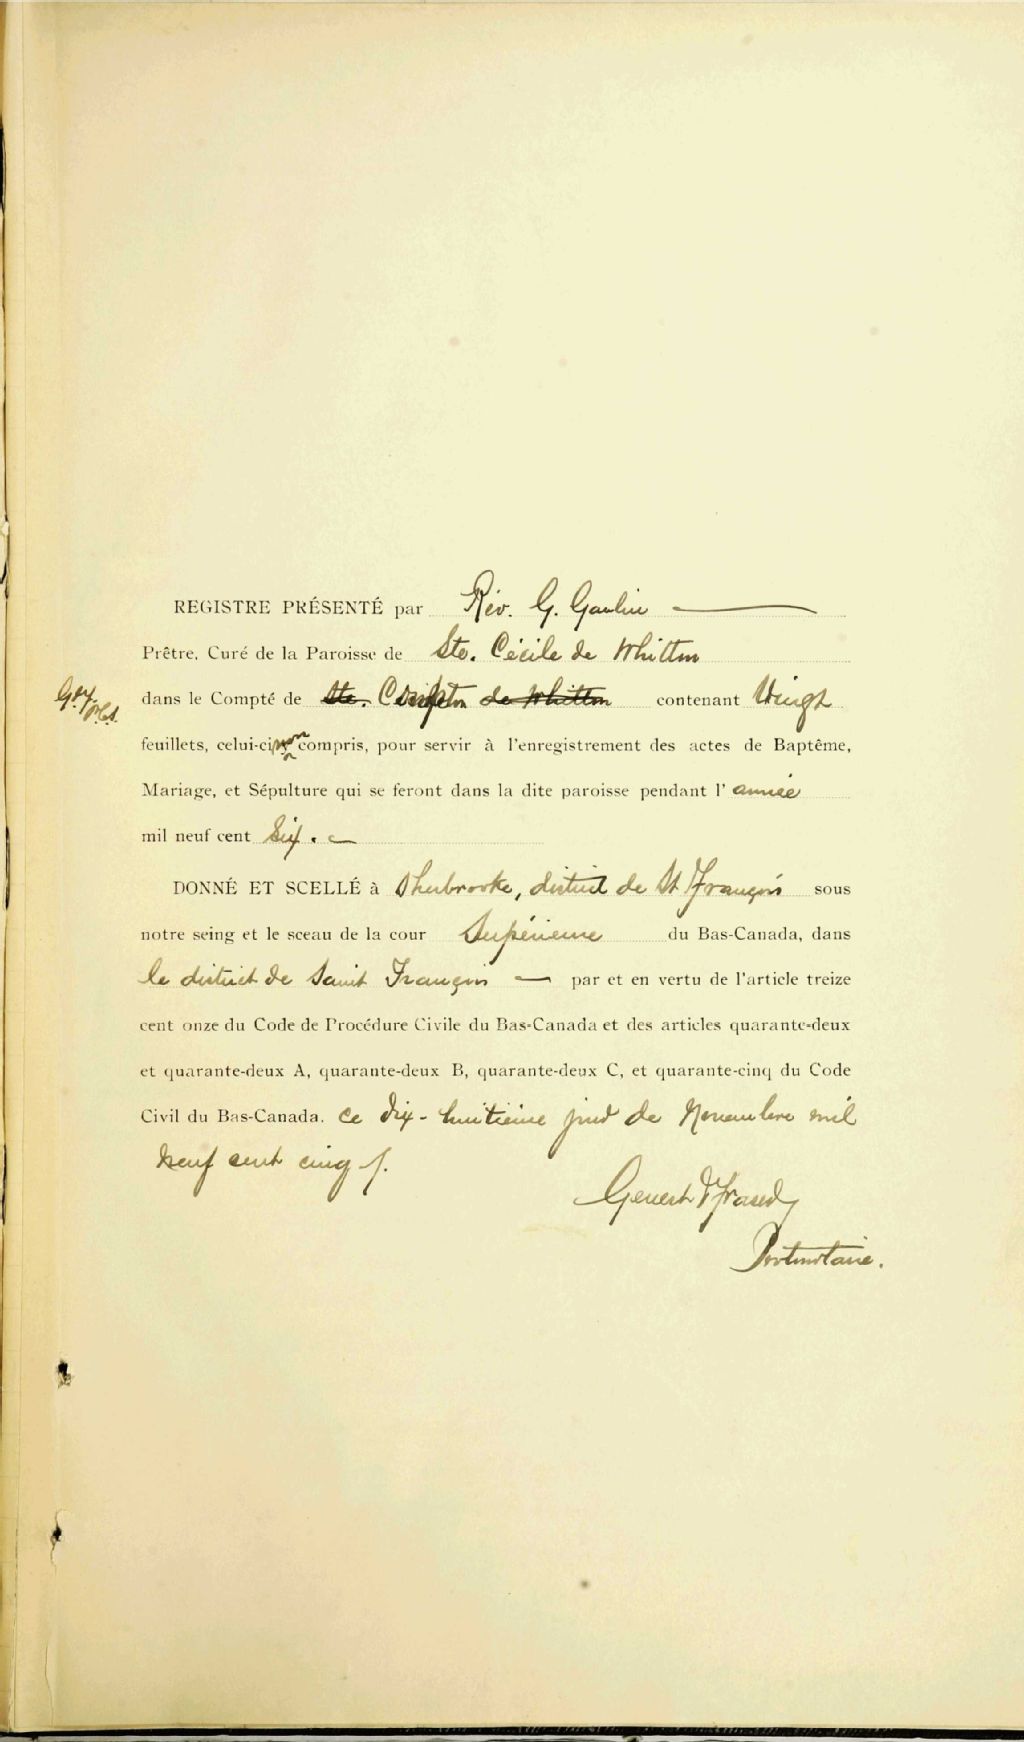 REGISTRE PRÉSENTÉ par Rév. G. Gaulin
Prêtre, Curé de la Paroisse de Ste. Cécile de Whitton
dans le Compté de Ste. Compton de Whitton contenant Vingt
feuillets, celui-ci non compris, pour servir à l'enregistrement des actes de Baptême,
Mariage, et Sépulture qui se feront dans la dite paroisse pendant l'année
mil neuf cent Six.
DONNÉ ET SCELLÉ à Sherbrooke, district de St François sous
notre seing et le sceau de la cour Supérieure du Bas-Canada, dans
le district de Saint François — par et en vertu de l'article treize
cent onze du Code de Procédure Civile du Bas-Canada et des articles quarante-deux
et quarante-deux A, quarante-deux B, quarante-deux C, et quarante-cinq du Code
Civil du Bas-Canada. ce dix-huitième jour de Novembre mil
neuf cent cinq
Genest & Fraser
Protonotaire.